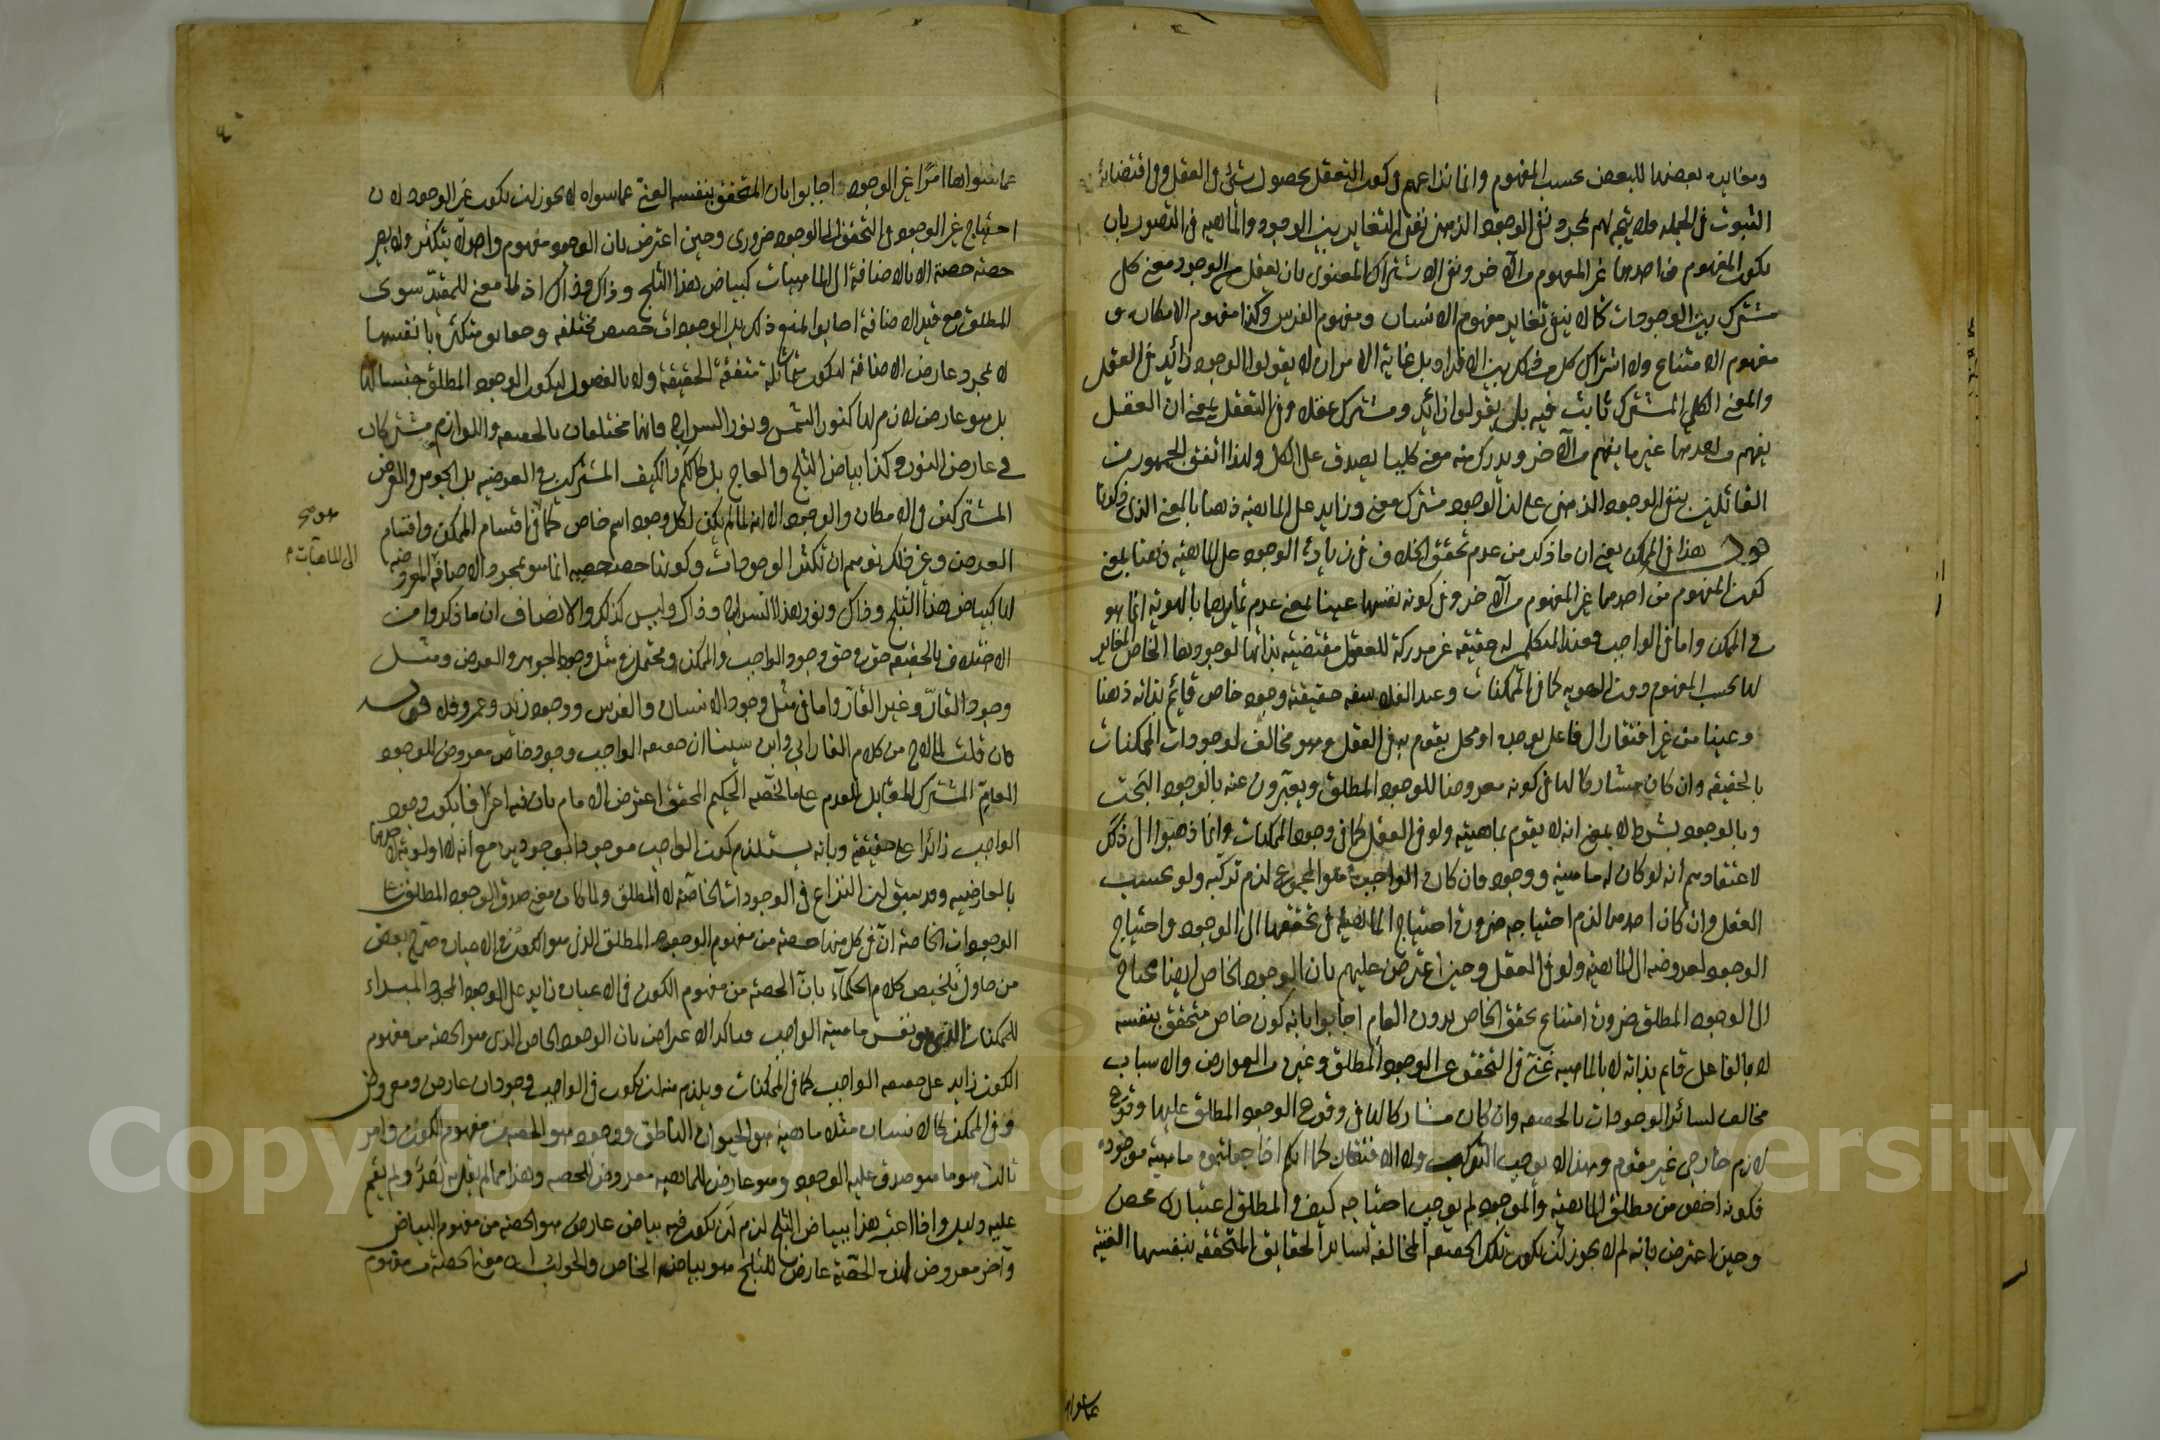 ومغايرة بعضها للبعض بحسب المفهوم وانما نزاعهم في كون التعقل بحصول شئ في العقل وفي اقتضائه
الثبوت في الجملة ولا يتجه لهم بمجرد نفي الوجود الذهني نفي التغاير بين الوجود والماهية في التصور بان
يكون المفهوم من احدهما غير المفهوم من الآخر ونفي الاشتراك المعنوي بان يعقل من الوجود معنى كلي
مشترك بين الوجودات كما لا ينفي تغاير مفهوم الانسان ومفهوم الفرس وكذا مفهوم الامكان و
مفهوم الامتناع ولا اشتراك كل من ذلك بين الافراد بل غاية الامر ان لا يقولوا الوجود زائد في العقل
والمعنى الكلي المشترك ثابت فيه بل يقولوا زائد ومشترك عقلا وفي التعقل بمعنى ان العقل
يفهم من احدهما غير ما يفهم من الآخر ويدرك منه معنى كليا يصدق على الكل ولهذا اتفق الجمهور من
القائلين بنفي الوجود الذهني على ان الوجود مشترك معنى وزايد على الماهية ذهنا بالمعنى الذي ذكرنا
قوله هذا في الممكن يعني ان ما ذكر من عدم تحقق الخلاف في زيادة الوجود على الماهية ذهنا بمعنى
كون المفهوم من احدهما غير المفهوم من الآخر وفي كونه نفسها عينا بمعنى عدم تمايزهما بالهوية انما هو
في الممكن واما في الواجب فعند المتكلمين له حقيقة غير مدركة للعقول مقتضية بذاتها لوجودها الخاص المغاير
لها بحسب المفهوم دون الهوية كما في الممكنات وعند الفلاسفة حقيقته وجود خاص قائم بذاته ذهنا
وعينا من غير افتقار الى فاعل يوجده او محل يقوم به في العقل وهو مخالف لوجودات الممكنات
بالحقيقة وان كان مشاركا لها في كونه معروضا للوجود المطلق ويعبرون عنه بالوجود البحت
وبالوجود بشرط لا بمعنى انه لا يقوم بماهية ولو في العقل كما في وجود الممكنات وانما ذهبوا الى ذلك
لاعتقادهم أنه لو كان له ماهية ووجود فان كان الواجب هو المجموع لزم تركبه ولو بحسب
العقل وان كان احدهما لزم احتياجه ضرورة احتياج الماهية في تحققها الى الوجود واحتياج
الوجود لعروضه الى الماهية ولو في العقل وحين اعترض عليهم بان الوجود الخاص ايضا محتاج
الى الوجود المطلق ضرورة امتناع تحقق الخاص بدون العام اجابوا بانه كون خاص متحقق بنفسه
لا بالفاعل قايم بذاته لا بالماهية غني في التحقق عن الوجود المطلق وغيره من العوارض والاسباب
مخالف لسائر الوجودات بالحقيقة وان كان مشاركا لها في وقوع الوجود المطلق عليها وقوع
لازم خارجي غير مقوم وهذا لا يوجب التركيب ولا الافتقار كما انكم اذا جعلتموه ماهية موجودة
فكونه اخص من مطلق الماهية والموجود لم يوجب احتياجه كيف والمطلق اعتباري محض
وحين اعترض بانه لم لا يجوز ان تكون تلك الحقيقة المخالفة لسائر الحقايق المتحققة بنفسها الغنية
عما سواها
عما سواها امرا غير الوجود اجابوا بان المتحقق بنفسه الغني عما سواه لا يجوز ان يكون غير الوجود لان
احتياج غير الوجود في التحقق الى الوجود ضروري وحين اعترض بان الوجود مفهوم واحد لا يتكثر ولا يصير
حصة حصة الا بالاضافة الى الماهيات كبياض هذا الثلج وذاك وذاك اذ لا معنى للمقيد سوى
المطلق مع قيد الاضافة اجابوا بمنع ذلك بل الوجودات حصص مختلفة وحقايق متكثرة بانفسها
لا بمجرد عارض الاضافة لتكون متماثلة متفقة الحقيقة ولا بالفصول ليكون الوجود المطلق جنسا لها
بل هو عارض لازم لها كنور الشمس ونور السراج فانهما مختلفان بالحقيقة واللوازم مشتركان
في عارض النور وكذا بياض الثلج والعاج بل كالكم والكيف المشتركين في العرضية بل الجوهر والعرض
المشتركين في الامكان والوجود الا انه لما لم يكن لكل وجود اسم خاص كما في اقسام الممكن واقسام
العرض وغير ذلك توهم ان تكثر الوجودات وكونها حصة حصة انما هو بمجرد الاضافة المعروضة
الى الماهيات
لها كبياض هذا الثلج وذاك ونور هذا السراج وذاك وليس كذلك والانصاف ان ما ذكروا من
الاختلاف بالحقيقة حق في حق وجود الواجب والممكن ومحتمل في مثل وجود الجوهر والعرض ومثل
وجود القار وغير القار واما في مثل وجود الانسان والفرس ووجود زيد وعمرو فلا قوله
فان قلت لما لاح من كلام الفارابي وابن سينا ان حقيقة الواجب وجود خاص معروض للوجود
العام المشترك المقابل للعدم على ما لخصه الحكيم المحقق اعترض الامام بان فيه اعترافا بكون وجود
الواجب زائدا على حقيقته وبانه يستلزم كون الواجب موجودا بوجودين مع انه لا اولوية لاحدهما
بالعارضية وقد سبق ان النزاع في الوجودات الخاصة لا المطلق ولما كان معنى صدق الوجود المطلق على
الوجودات الخاصة ان في كل منها حصة من مفهوم الوجود المطلق الذي هو الكون في الاعيان صرح بعض
من حاول تلخيص كلام الحكماء بان الحصة من مفهوم الكون في الاعيان زايد على الوجود المجرد المبداء
للممكنات الذي هو نفس ماهية الواجب فتأكد الاعتراض بان الوجود الخاص الذي هو الحصة من مفهوم
الكون زايد على حقيقة الواجب كما في الممكنات ويلزم منه ان يكون في الواجب وجودان عارض ومعروض
وفي الممكن كالانسان مثلا ماهية هو الحيوان الناطق ووجود هو الحصة من مفهوم الكون وامر
ثالث هو ما صدق عليه الوجود وهو عارض للماهية معروض للحصة وهذا مما لم يقل به احد ولم يقم
عليه دليل واذا اعتبر هذا ببياض الثلج لزم ان يكون فيه بياض عارض هو الحصة من مفهوم البياض
وآخر معروض لهذه الحصة عارض للثلج هو بياضه الخاص والجواب ان معنى الحصة من مفهوم
Copyright © King Saud University